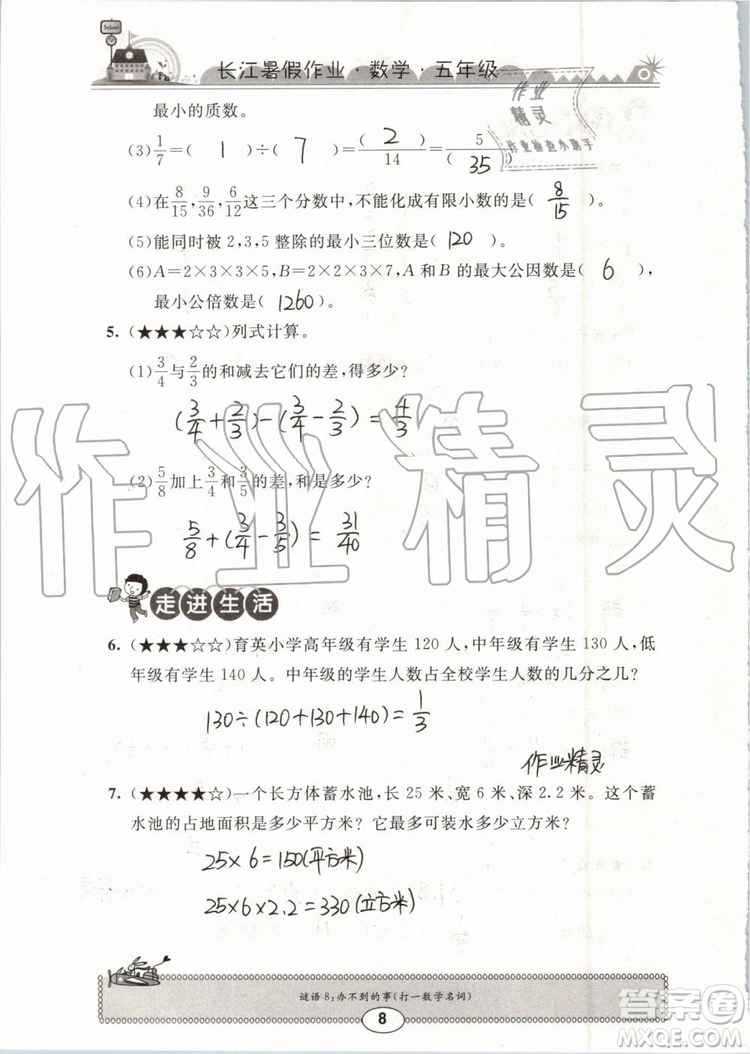 School
长江暑假作业·数学·五年级
作业
精灵
作业检查小助手
最小的质数。
(3) 1/7=( 1 )÷( 7 )=( 2 )/14=5/( 35 )
(4)在8/15,9/36,6/12这三个分数中,不能化成有限小数的是( 8/15 )。
(5)能同时被2,3,5整除的最小三位数是( 120 )。
(6)A=2×3×3×5,B=2×2×3×7,A和B的最大公因数是( 6 ),
最小公倍数是( 1260 )。
5.(★★★☆☆)列式计算。
(1)3/4与2/3的和减去它们的差,得多少?
(3/4+2/3)-(3/4-2/3)=4/3
(2)5/8加上3/4和3/5的差,和是多少?
5/8+(3/4-3/5)=31/40
作业精灵
走进生活
6.(★★★☆☆)育英小学高年级有学生120人,中年级有学生130人,低
年级有学生140人。中年级的学生人数占全校学生人数的几分之几?
130÷(120+130+140)=1/3
作业精灵
7.(★★★★☆)一个长方体蓄水池,长25米、宽6米、深2.2米。这个蓄
水池的占地面积是多少平方米?它最多可装水多少立方米?
25×6=150(平方米)
25×6×2.2=330(立方米)
谜语8:办不到的事(打一数学名词)
8
答案圈
MXQE.COM